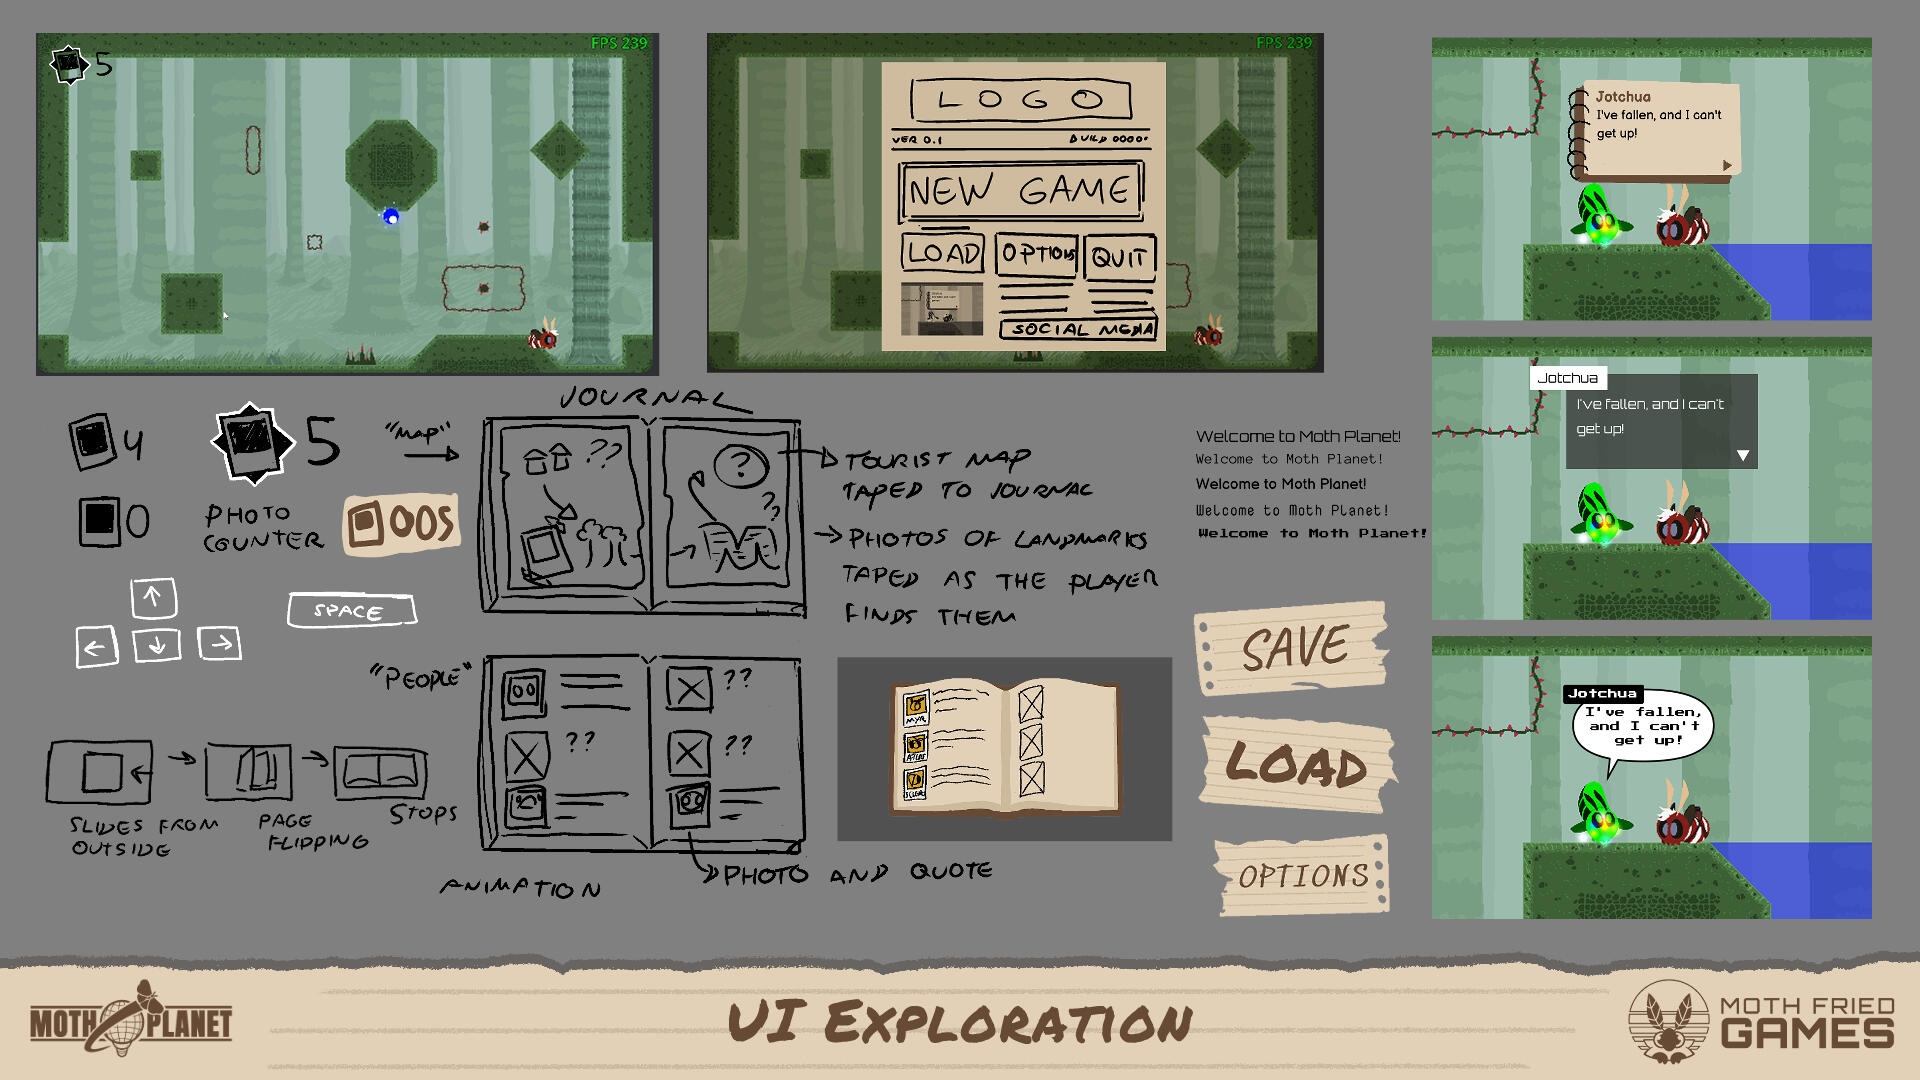 5
FPS 239
FPS 239
LOGO
VER 0.1
BUILD 0000.
NEW GAME
LOAD
OPTIONS
QUIT
SOCIAL MEDIA
Jotchua
I've fallen, and I can't
get up!
4
5
0
PHOTO
COUNTER
005
SPACE
"MAP"
JOURNAL
??
?
??
TOURIST MAP
TAPED TO JOURNAL
PHOTOS OF LANDMARKS
TAPED AS THE PLAYER
FINDS THEM
Welcome to Moth Planet!
Welcome to Moth Planet!
Welcome to Moth Planet!
Welcome to Moth Planet!
Welcome to Moth Planet!
Jotchua
I've fallen, and I can't
get up!
"PEOPLE"
??
??
??
PHOTO AND QUOTE
SLIDES FROM
OUTSIDE
PAGE
FLIPPING
STOPS
ANIMATION
MYR
SAVE
LOAD
OPTIONS
Jotchua
I've fallen,
and I can't
get up!
MOTH PLANET
UI EXPLORATION
MOTH FRIED
GAMES